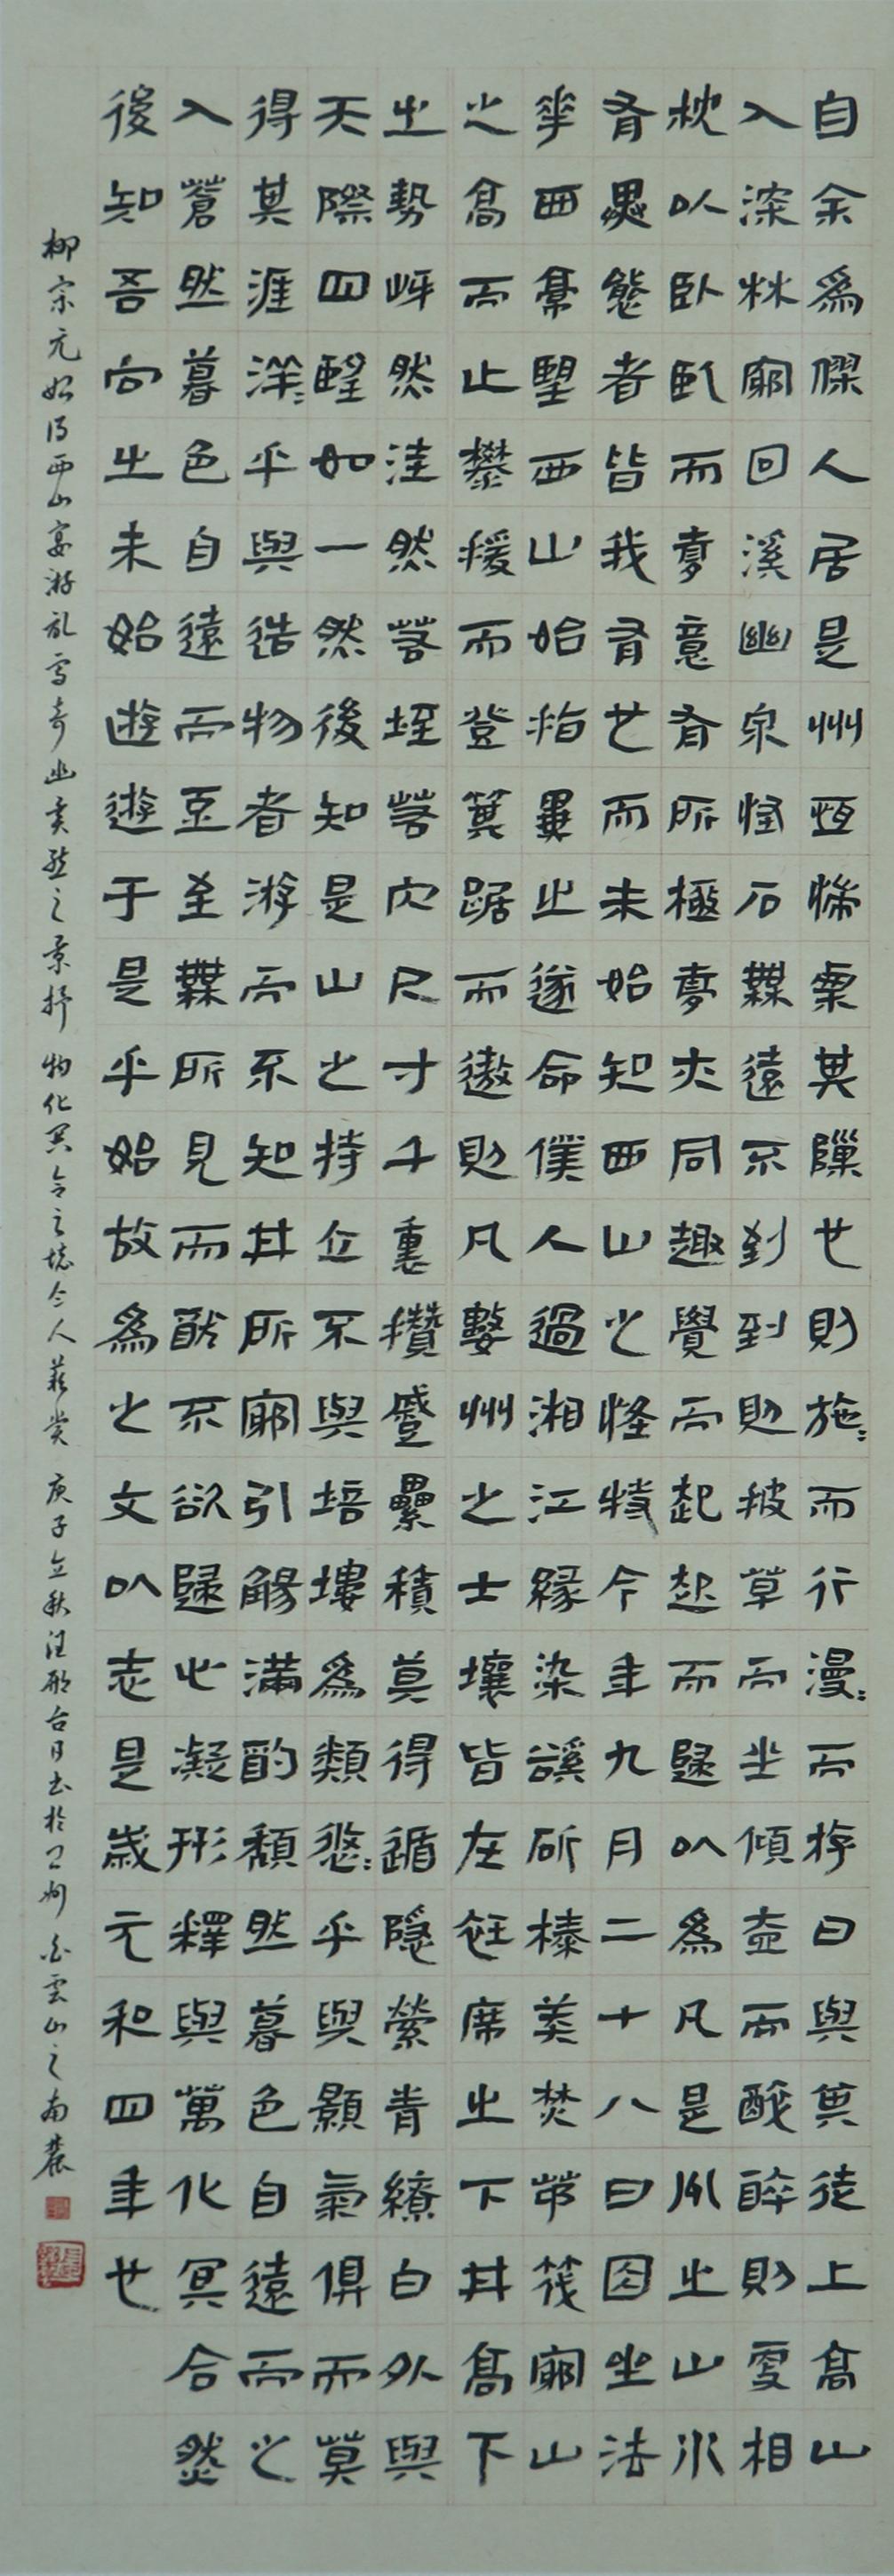 自余為僇人居是州恆惴慄其隟也則施〻而行漫〻而游日與其徒上高山
入深林窮回溪幽泉怪石無遠不到到則披草而坐傾壺而醉醉則更相
枕以臥臥而夢意有所極夢亦同趣覺而起起而歸以為凡是州之山水
有異態者皆我有也而未始知西山之怪特今年九月二十八日因坐法
華西亭望西山始指異之遂命僕人過湘江緣染谿斫榛莽焚茅筏窮山
之高而止攀援而登箕踞而遨則凡數州之土壤皆在衽席之下其高下
之勢岈然洼然若垤若穴尺寸千里攢蹙纍積莫得遁隱縈青繚白外與
天際四望如一然後知是山之特立不與培塿為類悠〻乎與顥氣俱而莫
得其涯洋〻乎與造物者游而不知其所窮引觴滿酌頹然暮色自遠而之
入蒼然暮色自遠而至至無所見而猶不欲歸心凝形釋與萬化冥合然
後知吾向之未始遊遊于是乎始故為之文以志是歲元和四年也
柳宗元始得西山宴游記寫奇幽美麗之景抒物化冥合之境令人莊賞 庚子立秋汪 台月書於 州白雲山之南麓